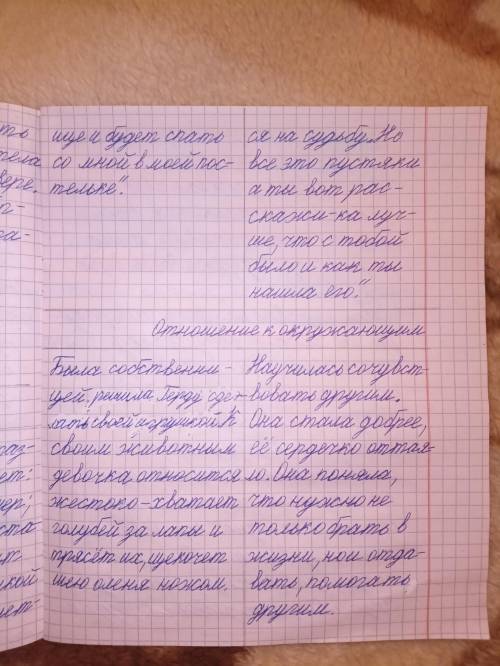 ть
тела
вере.
п-
га-
ище и будет спать
со мной в моей пос-
тельке".
ся на судьбу. Но
все это пустяки
а ты вот рас-
скажи-ка луч-
ше, что с тобой
было и как ты
нашла его."
Отношение к окружающим
Была собственни-
цей. решила Герду сде-
лать своей игрушкой. К
своим животным
девочка относится
жестоко-хватает
голубей за лапы и
трясёт их, щекочет
шею оленя ножом.
Научилась сочувст-
вовать другим.
Она стала добрее,
её сердечко оттая-
ло. Она поняла,
что нужно не
только брать в
жизни, но и отда-
вать, помогать
другим.
раз-
ет:
ста
кой
ет-